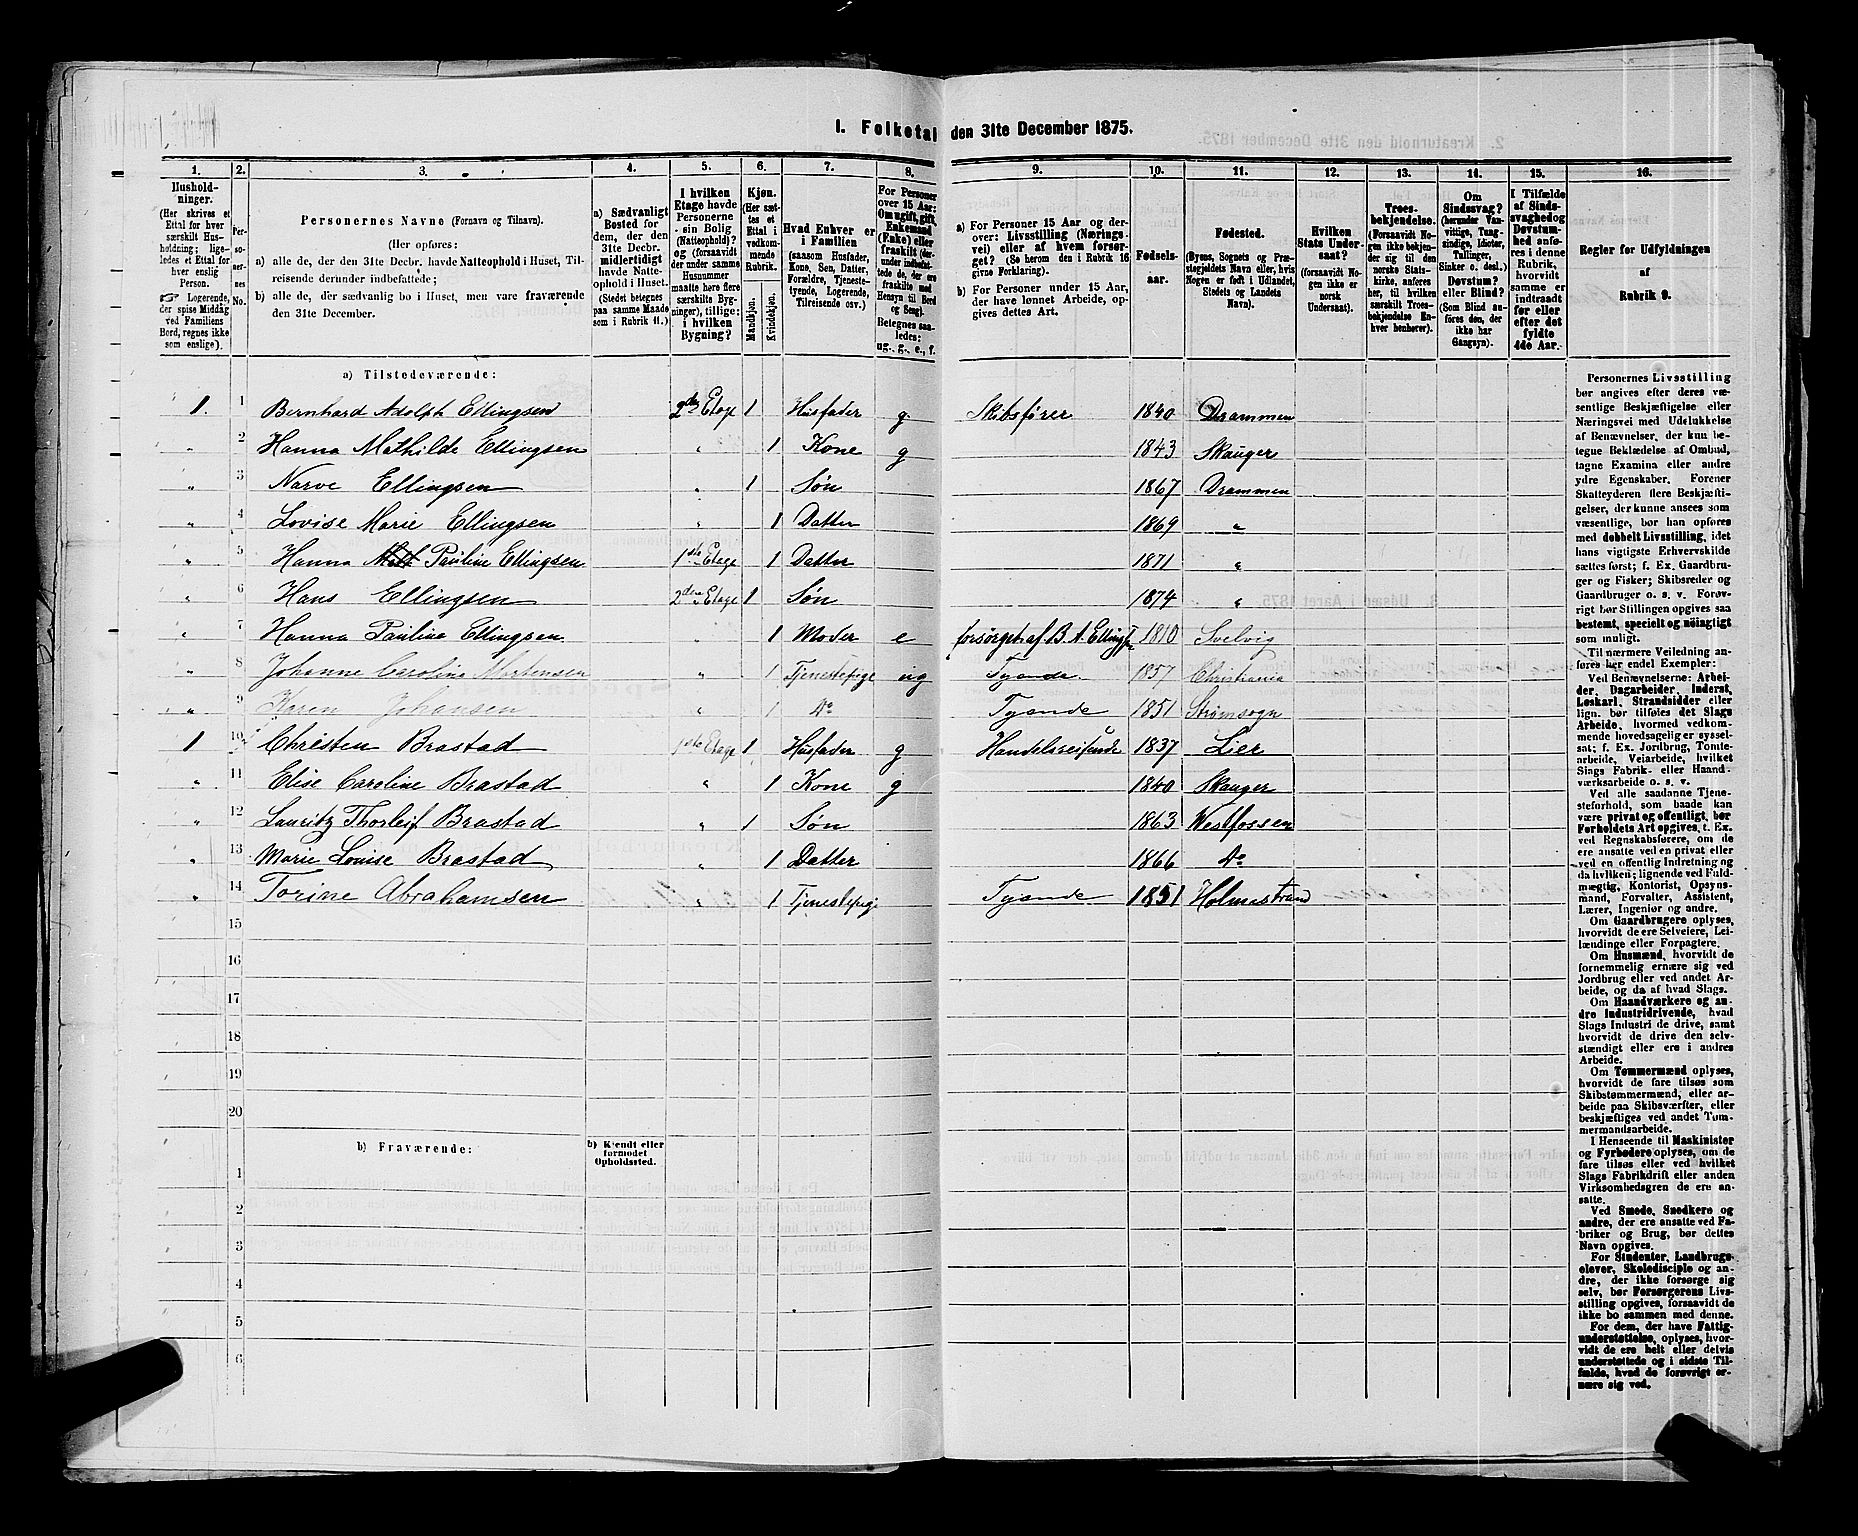 1. Folketal den 31te December 1875.
1. 2. 3. 4. 5. 6. 7. 8. 9. 10. 11. 12. 13. 14. 15. 16.
Husholdninger.
(Her skrives et Ettal for hver særskilt Husholdning; ligeledes et Ettal for hver enslig Person.
Logerende, der spise Middag ved Familiens Bord, regnes ikke som enslige).
Personernes No.
Personernes Navne (Fornavn og Tilnavn).
(Her opføres:
a) alle de, der den 31te Decbr. havde Natteophold i Huset, Tilreisende derunder indbefattede;
b) alle de, der sædvanlig bo i Huset, men vare fraværende den 31te December.
a) Sædvanligt Bosted for dem, der den 31te Decbr. midlertidigt havde Natteophold i Huset. (Stedet betegnes paa samme Maade som i Rubrik 11.)
I hvilken Etage havde Personerne sin Bolig (Natteophold)? og (forsaavidt der under samme Husnummer maatte høre flere særskilte Bygninger), tillige: i hvilken Bygning?
Kjøn. (Her sættes et Ettal i vedkommende Rubrik.
Mandkjøn.
Kvindekjøn.
Hvad Enhver er i Familien (saasom Husfader, Kone, Søn, Datter, Forældre, Tjenestetyende, Logerende, Tilreisende osv.)
For Personer over 15 Aar: Om ugift, gift, Enkemand (Enke) eller fraskilt (derunder indbefattede de, der ere fraskilte med Hensyn til Bord og Seng). Betegnes saaledes: ug., g., e., f.
a) For Personer 15 Aar og derover: Livsstilling (Næringsvei) eller af hvem forsørget? (Se herom den i Rubrik 16 givne Forklaring).
b) For Personer under 15 Aar, der have lønnet Arbeide, opgives dettes Art.
Fødselsaar.
Fødested. (Byens, Sognets og Præstegjeldets Navn eller, hvis Nogen er født i Udlandet, Stedets og Landets Navn).
Hvilken Stats Undersaat? (forsaavidt Nogen ikke er norsk Undersaat).
Troesbekjendelse. (Forsaavidt Nogen ikke bekjender sig til den norske Statskirke, anføres her, til hvilken særskilt Troesbekjendelse Enhver henhører).
Om Sindssvag? (herunder Vanvittige, Tungsindige, Idioter, Tullinger, Sinker o. desl.) Døvstum? eller Blind? (Som Blind anføres den, der ikke har Gangsyn).
I Tilfælde af Sindssvaghed og Døvstumhed anføres i denne Rubrik, hvorvidt samme er indtraadt før eller efter det fyldte 4de Aar.
Regler for Udfyldningen af Rubrik 9.
a) Tilstedeværende:
1. 1 Bernhard Adolph Ellingsen 2den Etage 1 Husfader g Skibsfører 1840 Drammen
" 2 Hanna Mathilde Ellingsen " 1 Kone g 1843 Skauger
" 3 Narve Ellingsen " 1 Søn 1867 Drammen
" 4 Lovise Marie Ellingsen " 1 Datter 1869 "
" 5 Hanna Pauline Ellingsen 1ste Etage 1 Datter 1871 "
" 6 Hans Ellingsen 2den Etage 1 Søn 1874 "
" 7 Hanna Pauline Ellingsen " 1 Moder e forsørget af B. A. Ellingsen 1810 Svelvig
" 8 Johanne Carolina Mortensen " 1 Tjenestepige ug Tyende 1857 Christiania
" 9 Karen Johansen " 1 Do Tyende 1851 Strømsogn
1 10 Christen Brastad 1ste Etage 1 Husfader g Handelsreisende 1837 Lier
" 11 Elise Caroline Brastad " 1 Kone g 1840 Skauger
" 12 Lauritz Thorleif Brastad " 1 Søn 1863 Westfossen
" 13 Marie Louise Brastad " 1 Datter 1866 Do
" 14 Torine Abrahamsen " 1 Tjenestepige Tyende 1851 Holmestrand
15
16
17
18
19
20
b) Fraværende:
b) Kjendt eller formodet Opholdssted.
1
2
3
4
5
6
Personernes Livsstilling
bør angives efter deres væ-
sentlige Beskjæftigelse eller
Næringsvei med Udelukkelse
af Benævnelser, der kun be-
tegne Beklædelse af Ombud,
tagne Examina eller andre
ydre Egenskaber. Forener
Skatteyderen flere Beskjæfti-
gelser, der kunne ansees som
væsentlige, bør han opføres
med dobbelt Livsstilling, idet
hans vigtigste Erhvervskilde
sættes først; f. Ex. Gaardbru-
ger og Fisker; Skibsreder og
Gaardbruger o. s. v. Forøv-
rigt bør Stillingen opgives saa
bestemt, specielt og nøiagtigt
som muligt.
Til nærmere Veiledning an-
føres her endel Exempler:
Ved Benævnelserne: Arbei-
der, Dagarbeider, Inderst,
Løskarl, Strandsidder eller
lign. bør tilføies det Slags
Arbeide, hvormed vedkom-
mende hovedsagelig er syssel-
sat; f. Ex. Jordbrug, Tomte-
arbeide, Veiarbeide, hvilket
Slags Fabrik- eller Haand-
værksarbeide o. s. v.
Ved alle saadanne Tjene-
steforhold, som baade kan
være privat og offentligt, bør
Forholdets Art opgives, t. Ex.
ved Regnskabsførere, om de
ere ansatte ved en privat eller
ved en offentlig Indretning og
da hvilken; lignende ved Fuld-
mægtig, Kontorist, Opsyns-
mand, Forvalter, Assistent,
Lærer, Ingeniør og andre.
Om Gaardbrugere oplyses,
hvorvidt de ere Selveiere, Lei-
lændinge eller Forpagtere.
Om Husmænd, hvorvidt de
fornemmelig ernære sig ved
Jordbrug eller ved andet Ar-
beide, og da af hvad Slags.
Om Haandværkere og an-
dre Industridrivende, hvad
Slags Industri de drive, samt
hvorvidt de drive den selv-
stændigt eller ere i andres
Arbeide.
Om Tømmermænd oplyses,
hvorvidt de fare tilsøs som
Skibstømmermænd, eller ar-
beide paa Skibsværfter, eller
beskjæftiges ved andet Tøm-
mermandsarbeide.
I Henseende til Maskinister
og Fyrbødere oplyses, om de
fare tilsøs eller ved hvilket
Slags Fabrikdrift eller anden
Virksomhedsgren de ere an-
satte.
Ved Smede, Snedkere og
andre, der ere ansatte ved Fa-
briker og Brug, bør dettes
Navn opgives.
For Studenter, Landbrugs-
elever, Skoledisciple og an-
dre, der ikke forsørge sig
selv, bør Forsørgerens Livs-
stilling opgives, forsaavidt de
ikke bo sammen med denne.
For dem, der have Fattig-
understøttelse, oplyses, hvor-
vidt de ere helt eller delvis
understøttede og i sidste Til-
fælde, hvad de forøvrigt er-
nære sig ved.